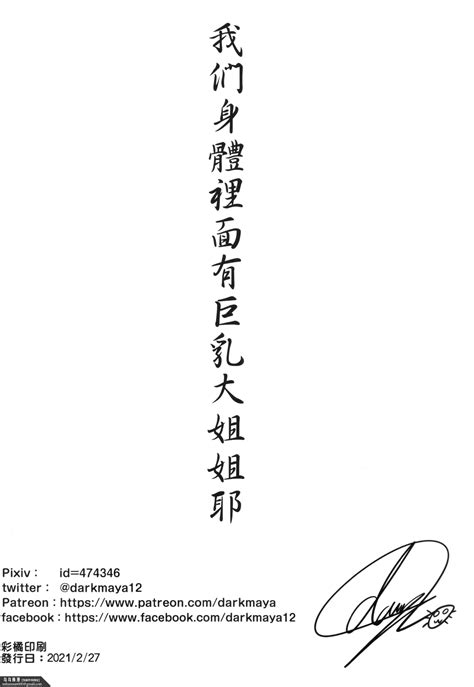 我們身體裡面有巨乳大姐姐耶
Pixiv： id=474346
twitter： @darkmaya12
Patreon：https://www.patreon.com/darkmaya
facebook：https://www.facebook.com/darkmaya12
彩橘印刷
發行日：2021/2/27